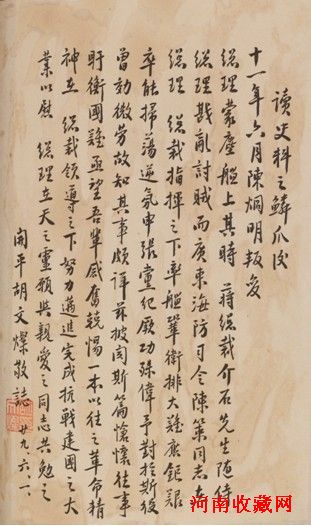 讀史料之鱗爪後
十一年六月陳烱明叛變
總理蒙塵艦上其時　蔣總裁介石先生随侍
總理戡亂討賊而廣東海防司令陳策同志在
總理　總裁指揮之下率艦鞏衛排大難應鉅艱
卒能掃蕩逆氣申張黨紀厥功殊偉予對於斯役
曾効微勞故知其事頗詳茲披閱斯篇愴懷往事
盱衡國難亟望吾輩感奮兢惕一本以往之革命精
神在　總裁領導之下努力邁進完成抗戰建國之大
業以慰　總理在天之靈願與親愛之同志共勉之
開平胡文燦敬誌　廿九、六、一、
河南收藏网